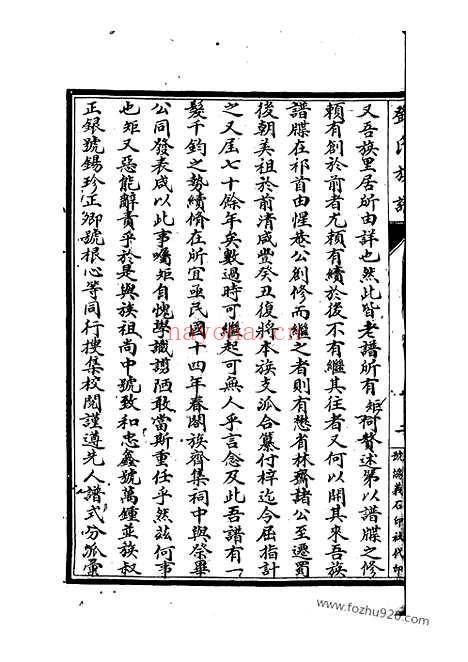 鄧氏族譜
二
號瀚義石印社代印
又吾族里居所由詳也然此皆老譜所有矩何贅述第以譜牒之修
賴有創於前者尤賴有續於後不有繼其往者又何以開其來吾族
譜牒在祁首由惺菴公創修而繼之者則有懋省林齋諸公至遷蜀
後朝美祖於前清咸豐癸丑復將本族支派合纂付梓迄今屈指計
之又屆七十餘年矣數過時可繼起可無人乎言念及此吾譜有一
髮千鈞之勢續脩在所宜亟民國十四年春闔族齊集祠中與祭畢
公同發表咸以此事囑矩自愧學識謭陋敢當斯重任乎然茲何事
也矩又惡能辭責乎於是與族祖尚中號致和忠鑫號萬鍾並族叔
正銀號錫珍正卿號根心等同行搜集校閱謹遵先人譜式分派彙
nayona.cn
www.fozhu920.com